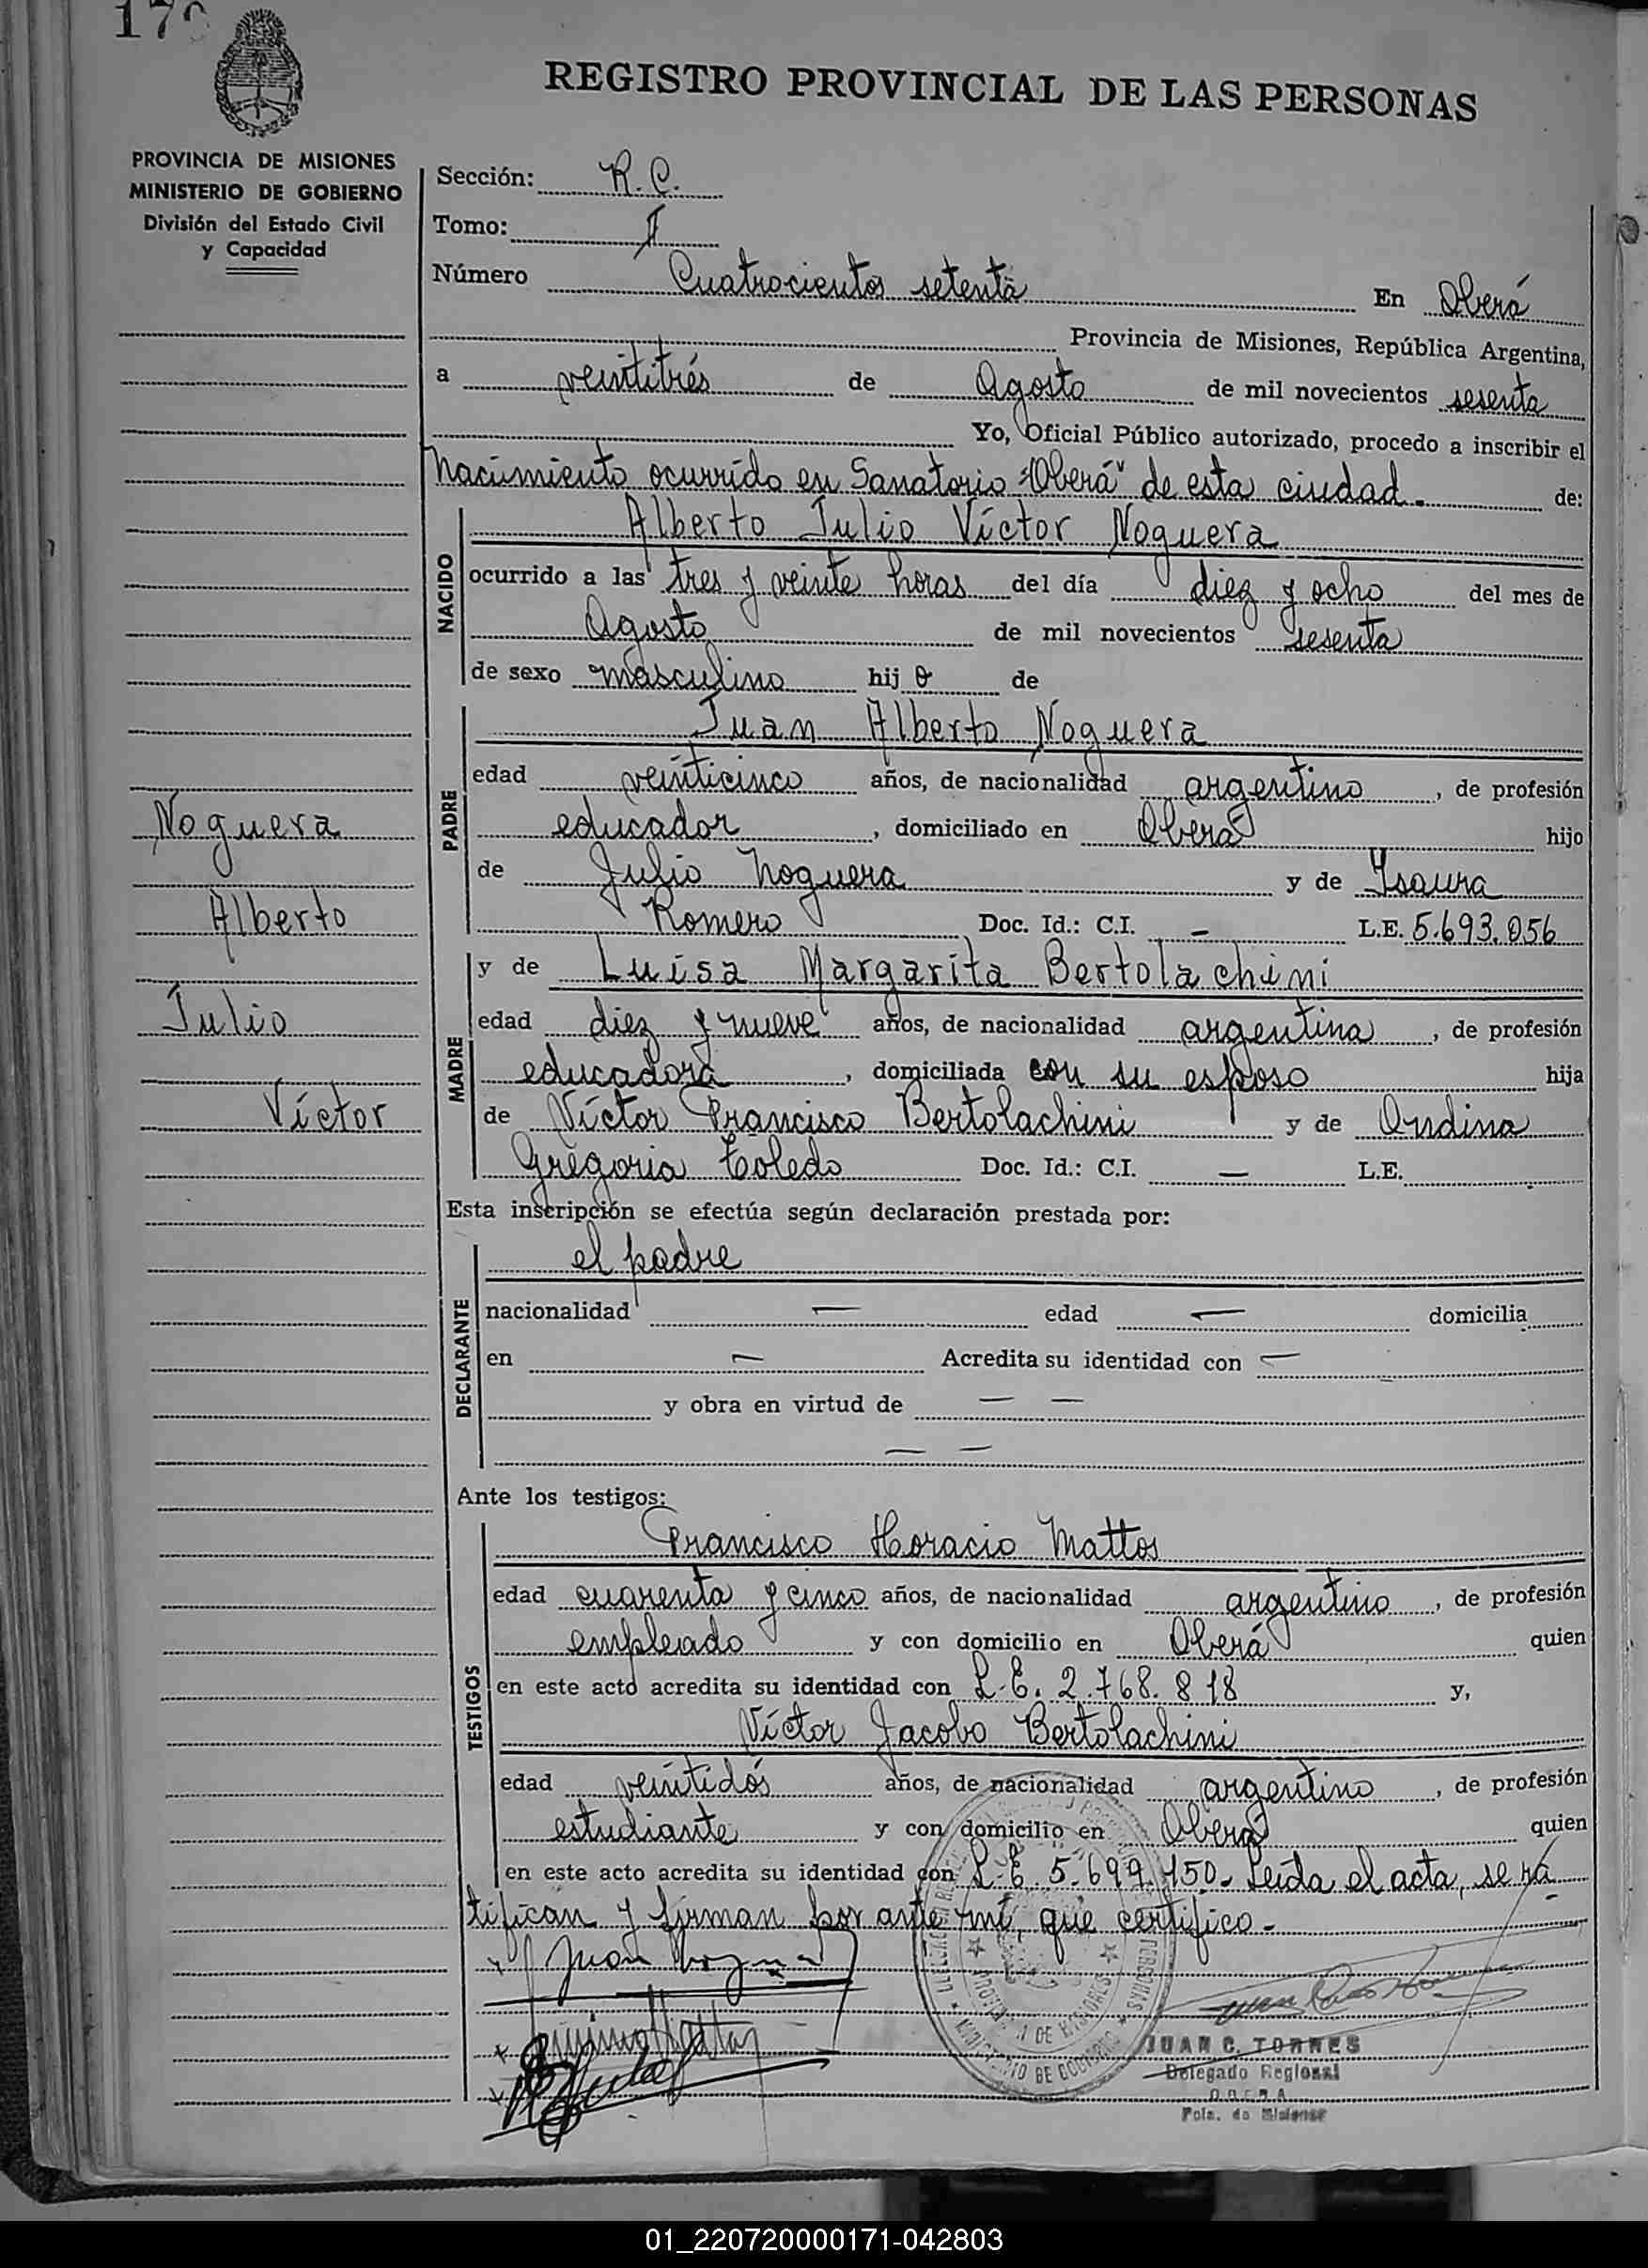 17
REGISTRO PROVINCIAL DE LAS PERSONAS
PROVINCIA DE MISIONES
MINISTERIO DE GOBIERNO
División del Estado Civil
y Capacidad
Sección: R. C.
Tomo: II
Número Cuatrocientos setenta En Oberá
Provincia de Misiones, República Argentina,
a veintitrés de Agosto de mil novecientos sesenta
Yo, Oficial Público autorizado, procedo a inscribir el
Nacimiento ocurrido en Sanatorio "Oberá" de esta ciudad. de:
NACIDO
Alberto Julio Víctor Noguera
ocurrido a las tres y veinte horas del día diez y ocho del mes de
Agosto de mil novecientos sesenta
de sexo masculino hij o de
PADRE
Juan Alberto Noguera
edad veinticinco años, de nacionalidad argentino, de profesión
educador, domiciliado en Oberá hijo
de Julio Noguera y de Ysaura
Romero Doc. Id.: C.I. — L.E. 5.693.056
MADRE
y de Luisa Margarita Bertolachini
edad diez y nueve años, de nacionalidad argentina, de profesión
educadora, domiciliada con su esposo hija
de Víctor Francisco Bertolachini y de Ondina
Gregoria Toledo Doc. Id.: C.I. — L.E.
Noguera
Alberto
Julio
Víctor
Esta inscripción se efectúa según declaración prestada por:
DECLARANTE
el padre
nacionalidad — edad — domicilia
en — Acredita su identidad con —
y obra en virtud de — —
— —
Ante los testigos:
TESTIGOS
Francisco Horacio Mattos
edad cuarenta y cinco años, de nacionalidad argentino, de profesión
empleado y con domicilio en Oberá quien
en este acto acredita su identidad con L.E. 2.768.818 y,
Víctor Jacobo Bertolachini
edad veintidós años, de nacionalidad argentino, de profesión
estudiante y con domicilio en Oberá quien
en este acto acredita su identidad con L.E. 5.699.150.- Leída el acta, se ra
tifican y firman por ante mí, que certifico.-
Juan
JUAN C. TORRES
Delegado Regional
OBERA
Pcia. de Misiones
PROVINCIA DE MISIONES
MINISTERIO DE GOBIERNO
01_220720000171-042803